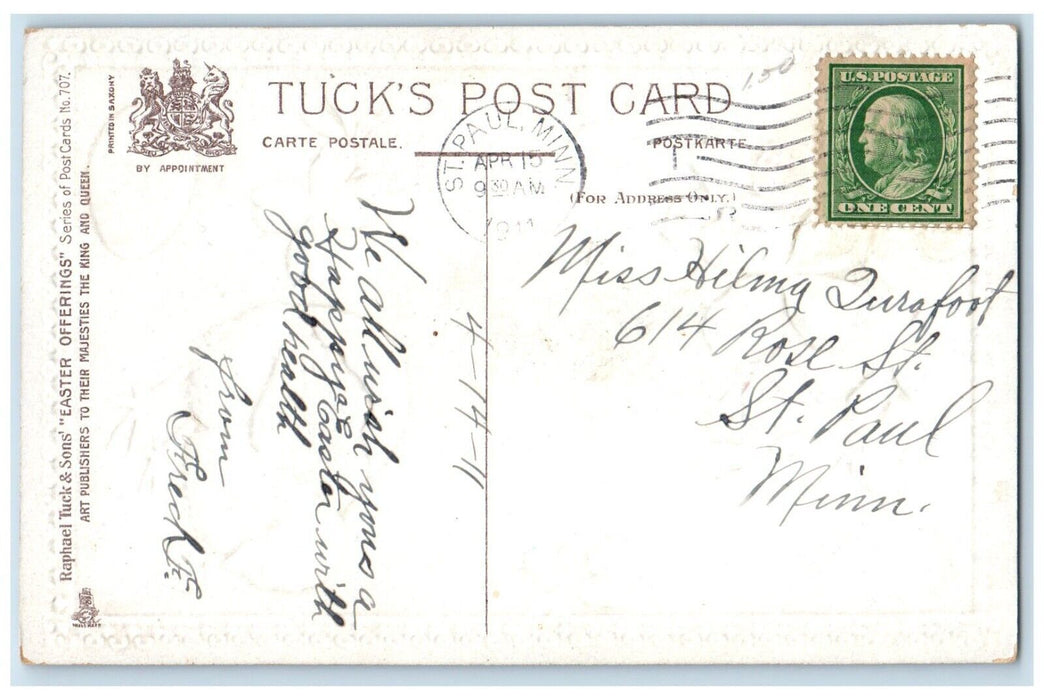 TUCK'S POST CARD
CARTE POSTALE.
POSTKARTE.
(FOR ADDRESS ONLY.)
BY APPOINTMENT
PRINTED IN SAXONY
Raphael Tuck & Sons' "EASTER OFFERINGS" Series of Post Cards No. 707.
ART PUBLISHERS TO THEIR MAJESTIES THE KING AND QUEEN.
ST. PAUL, MINN.
APR 15
9 30 AM
1911
1.50
U.S. POSTAGE
ONE CENT
We all wish you a
Happy Easter with
good health
from
Fred F.
4-14-11
Miss Hilma Durafoot
614 Rose St.
St. Paul
Minn.